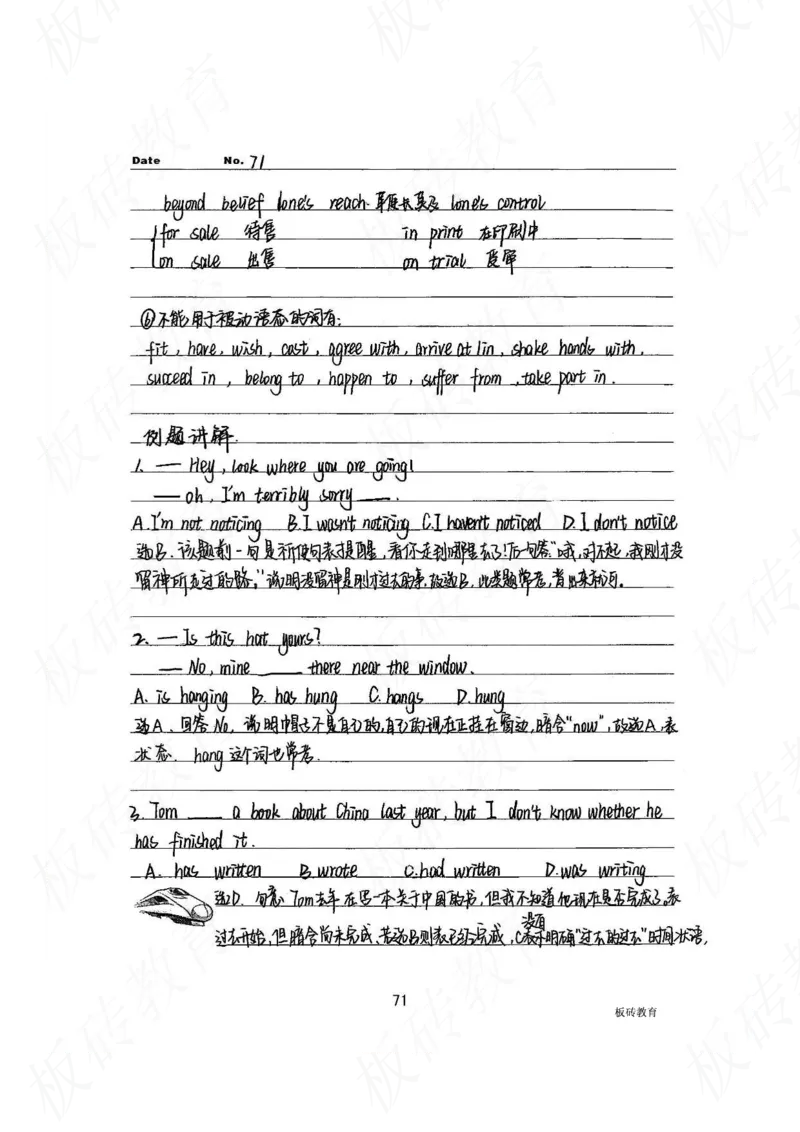 Date No. 71
beyond belief / one's reach 鞭长莫及 / one's control
for sale 待售 in print 在印刷中
on sale 出售 on trial 受审
⑥不能用于被动语态的词有:
fit, have, wish, cost, agree with, arrive at/in, shake hands with,
succeed in, belong to, happen to, suffer from, take part in.
例题讲解.
1. — Hey, look where you are going!
— oh, I'm terribly sorry ____.
A. I'm not noticing B. I wasn't noticing C. I haven't noticed D. I don't notice
选B. 该题前一句是祈使句表提醒, 看你走到哪里去了!后一句答"哦,对不起,我刚才没
留神所走过的路。"说明没留神是刚才过去的事,故选B, 此类题常考,背出来就可。
2. — Is this hat yours?
— No, mine ____ there near the window.
A. is hanging B. has hung C. hangs D. hung
选A、回答No, 说明帽子不是自己的,自己的现在正挂在窗边,暗合"now",故选A,表
状态. hang这个词也常考.
3. Tom ____ a book about China last year, but I don't know whether he
has finished it.
A. has written B. wrote C. had written D. was writing
选D. 句意 Tom去年在写一本关于中国的书,但我不知道他现在是否完成了。表
过去开始,但暗合尚未完成、若选B则表已经完成, C没有表示明确"过去的过去"时间状语,
71
板砖教育